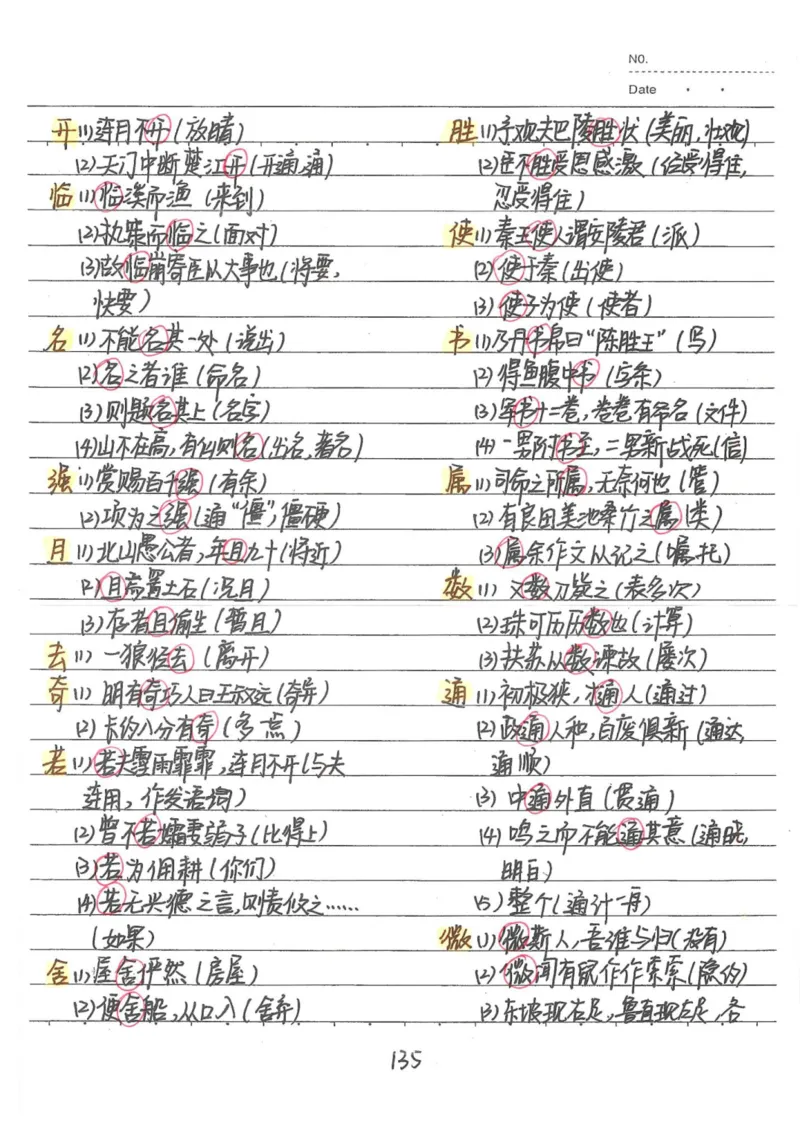 NO.
Date
开(1)连月不开(放晴)
(2)天门中断楚江开(开通,通)
临(1)临溪而渔(来到)
(2)执策而临之(面对)
(3)故临崩寄臣以大事也(将要,
快要)
名(1)不能名其一处(说出)
(2)名之者谁(命名)
(3)则题名其上(名字)
(4)山不在高,有仙则名(出名,著名)
强(1)赏赐百千强(有余)
(2)项为之强(通“僵”,僵硬)
且(1)北山愚公者,年且九十(将近)
(2)且焉置土石(况且)
(3)存者且偷生(暂且)
去(1)一狼径去(离开)
奇(1)明有奇巧人曰王叔远(奇异)
(2)长约八分有奇(多一点)
若(1)若夫霪雨霏霏,连月不开(与夫
连用,作发语词)
(2)曾不若孀妻弱子(比得上)
(3)若为佣耕(你们)
(4)若无兴德之言,则责攸之……
(如果)
舍(1)屋舍俨然(房屋)
(2)便舍船,从口入(舍弃)
胜(1)予观夫巴陵胜状(美丽,壮观)
(2)臣不胜受恩感激(经受得住,
忍受得住)
使(1)秦王使人谓安陵君(派)
(2)使于秦(出使)
(3)使子为使(使者)
书(1)乃丹书帛曰“陈胜王”(写)
(2)得鱼腹中书(字条)
(3)军书十二卷,卷卷有命名(文件)
(4)一男附书至,二男新战死(信)
属(1)司命之所属,无奈何也(管)
(2)有良田美池桑竹之属(类)
(3)属余作文以记之(嘱托)
数(1)又数刀毙之(表多次)
(2)珠可历历数也(计算)
(3)扶苏以数谏故(屡次)
通(1)初极狭,才通人(通过)
(2)政通人和,百废俱新(通达,
通顺)
(3)中通外直(贯通)
(4)鸣之而不能通其意(通晓,
明白)
(5)整个(通计一舟)
微(1)微斯人,吾谁与归(没有)
(2)微闻有鼠作作索索(隐约)
(3)东坡现右足,鲁直现左足,各
135